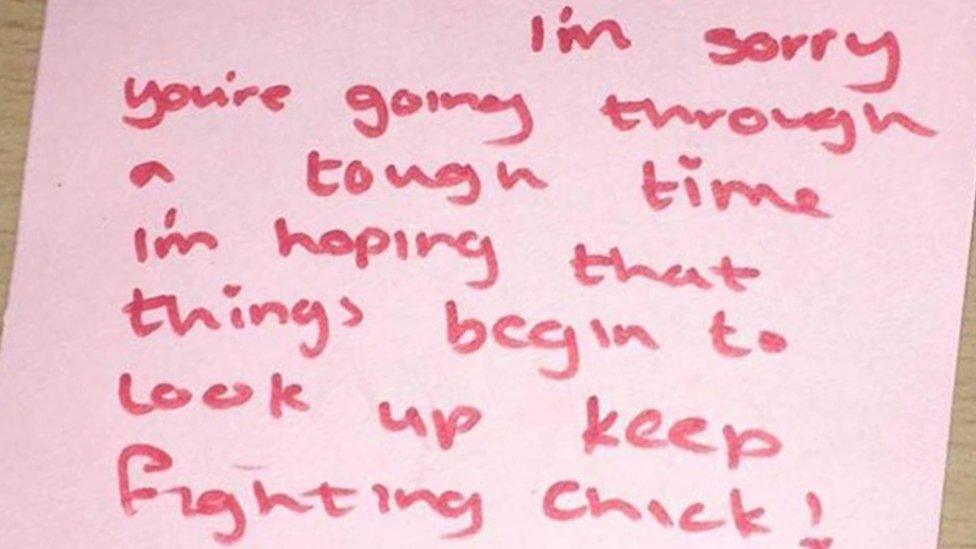 I'm sorry
you're going through
a tough time
I'm hoping that
things begin to
look up keep
fighting chick!